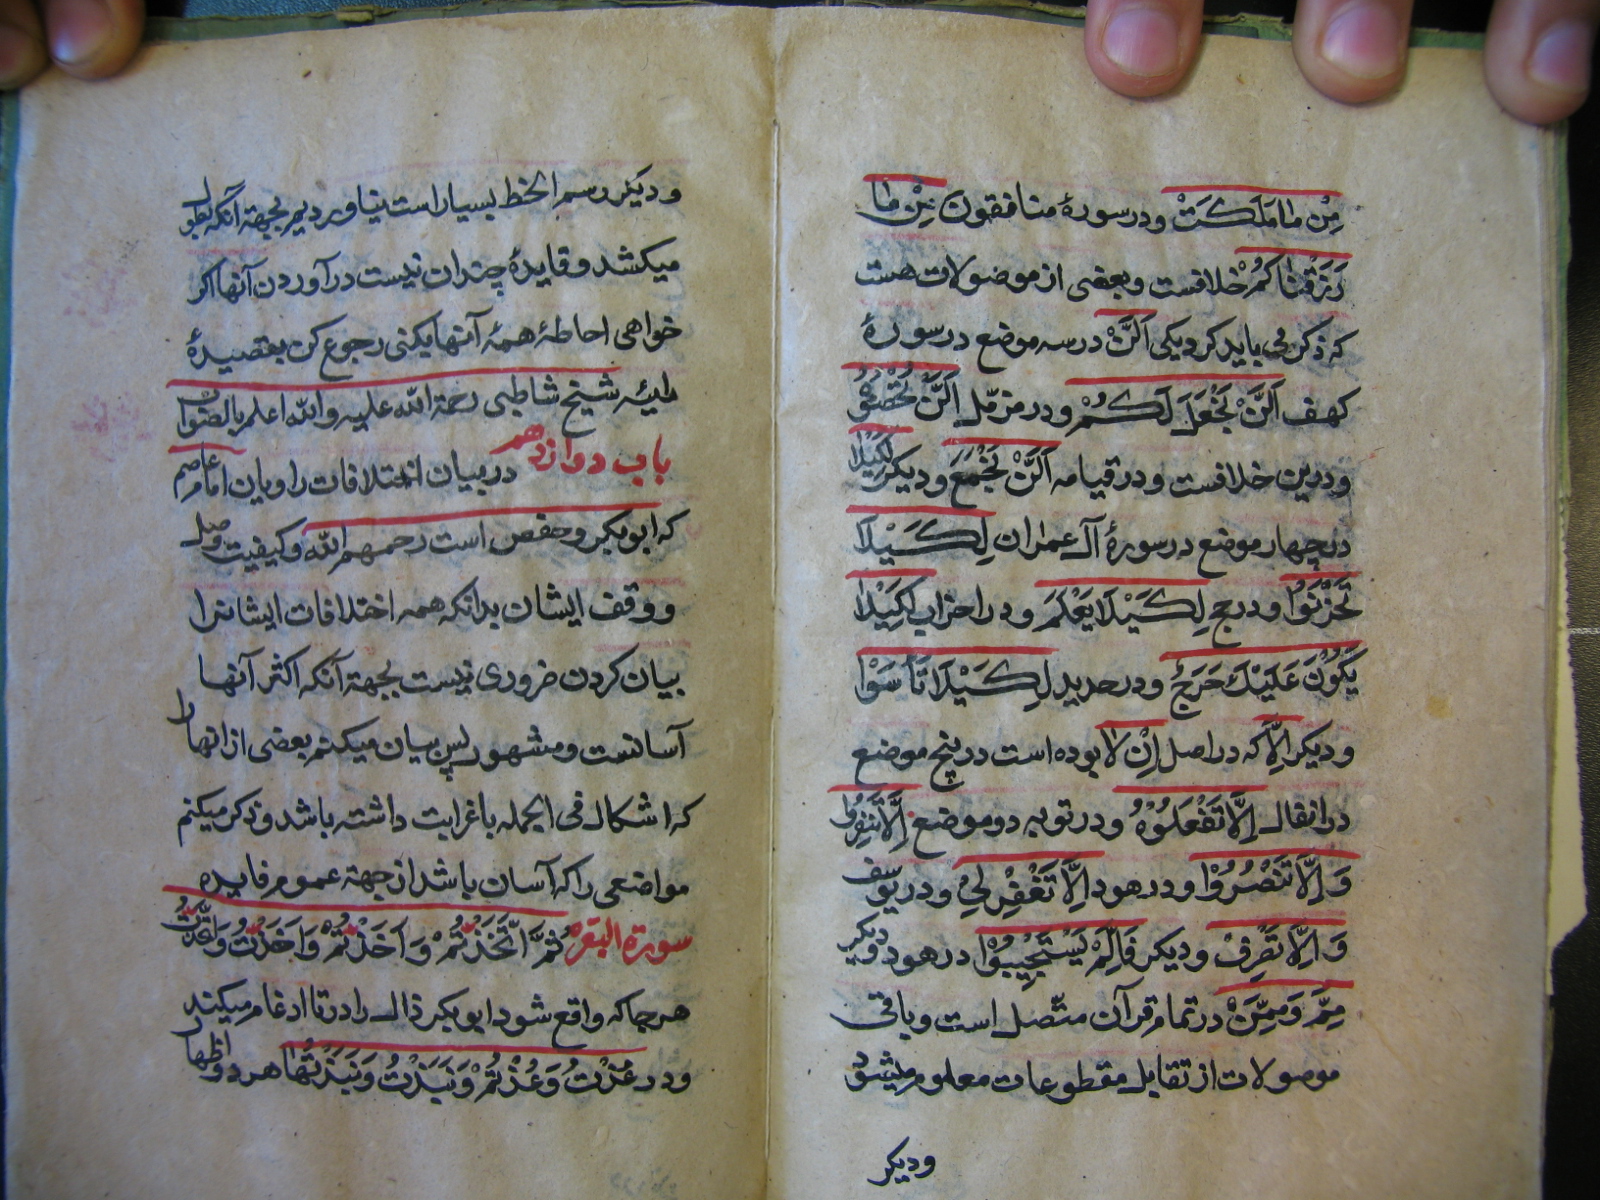 مِنْ مَا مَلَكَتْ ودر سورهٔ منافقون مِنْ مَا
رَزَقْنَاكُمْ خلافست وبعضی از موضولات هست
که ذکر می باید کرد ویکی اَلَنْ در سه موضع در سورهٔ
کهف اَلَنْ نَجْعَلَ لَكُمْ ودر مزّمل اَلَنْ تُحْصُوْهُ
ودرین خلافست ودر قیامه اَلَنْ نَجْمَعَ ودیکر لِكَيْلَا
در چهار موضع در سورهٔ آل عمران لِكَيْلَا
تَحْزَنُوْا ودر حج لِكَيْلَا يَعْلَمَ ودر احزاب لِكَيْلَا
يَكُوْنَ عَلَيْكَ حَرَجٌ ودر حدید لِكَيْلَا تَأْسَوْا
ودیکر اِلَّا که در اصل اِنْ لَا بوده است در پنج موضع
در انفال اِلَّا تَفْعَلُوْهُ ودر توبه دو موضع اِلَّا تَنْفِرُوْا
وَاِلَّا تَنْصُرُوْا ودر هود اِلَّا تَغْفِرْ لِيْ ودر یوسف
وَاِلَّا تَصْرِفْ ودیکر فَاِلَّمْ يَسْتَجِيْبُوْا در هود ودیکر
مِمَّ وَمِمَّنْ در تمام قرآن متّصل است وباقی
موصولات از تقابل مقطوعات معلوم میشود
ودیکر
ودیکر رسم الخط بسیار است نیاوردیم بجهة آنکه بطول
میکشد وفایدهٔ چندان نیست در آوردن آنها اکر
خواهی احاطهٔ همهٔ آنها بکنی رجوع کن بقصیدهٔ
شیخ شاطبی رحمة الله علیه والله اعلم بالصّواب
باب دوازدهم در بیان اختلافات راویان امام عاصم
که ابوبکر وحفص است رحمهم الله وکیفیت وصل
ووقف ایشان بدانکه همه اختلافات ایشانرا
بیان کردن ضروری نیست بجهة آنکه اکثر آنها
آسانست ومشهور پس بیان میکنم بعضی از آنها را
که اشکال فی الجمله یا غرابت داشته باشد وذکر میکنم
مواضعی را که آسان باشد از جهة عموم فایده
سورة البقره ثُمَّ اتَّخَذْتُمْ وَاَخَذْتُمْ وَاَخَذْتُ
هر جا که واقع شود ابوبکر ذال را در تا ادغام میکند
ودر عُذْتُ وَعُذْتُمْ وَنَبَذْتُ وَنَبَذْتُهَا هر دو اظهار